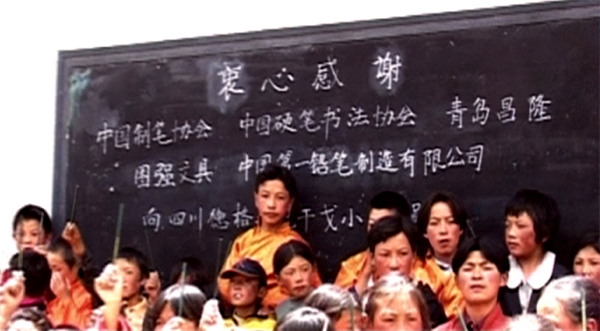 衷心感谢
中国制笔协会 中国硬笔书法协会 青岛昌隆
图强文具 中国第一铅笔制造有限公司
向四川德格 干戈小